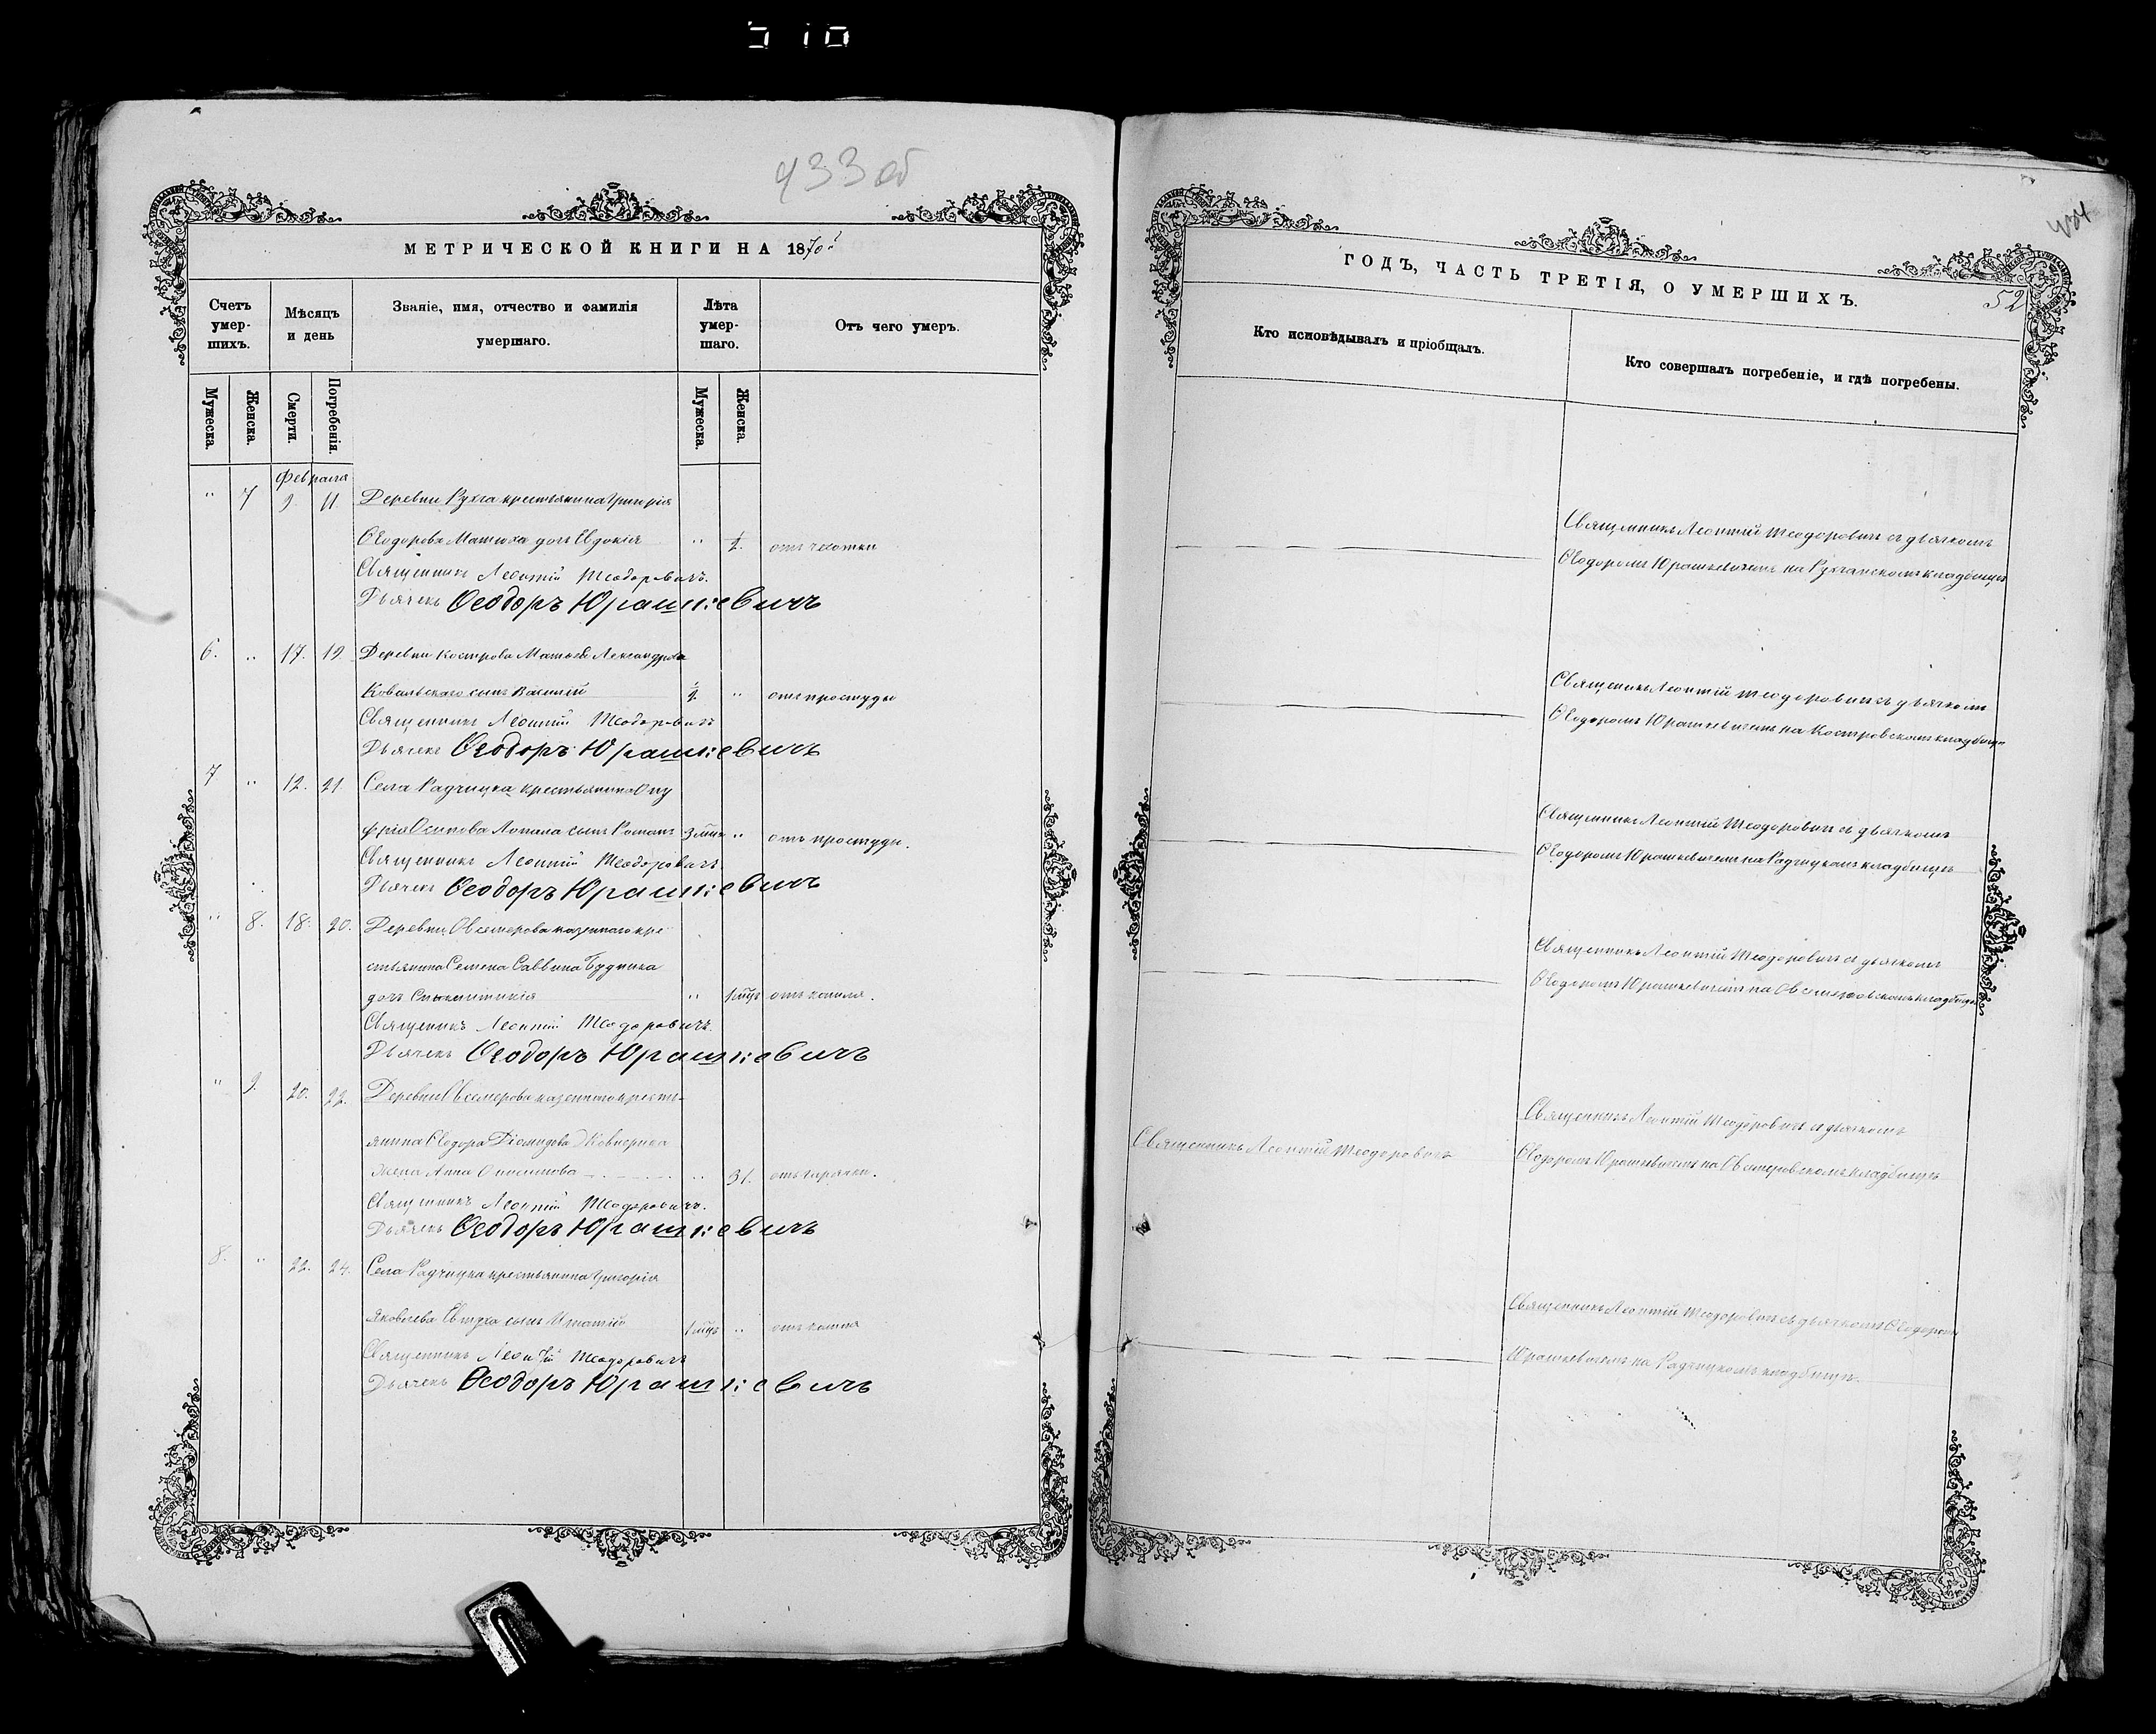 433 об
МЕТРИЧЕСКОЙ КНИГИ НА 1870й
Счетъ умер-шихъ.
Мѣсяцъ и день
Званіе, имя, отчество и фамилія умершаго.
Лѣта умер-шаго.
Отъ чего умеръ.
Мужеска.
Женска.
Смерти.
Погребенія.
Мужеска.
Женска.
Февраля
" 7 9. 11. Деревни Рухча крестьянина Григорія
Ѳеодорова Матюха дочь Евдокія " отъ чахотки
Священникъ Леонтій Теодоровичъ.
Дьячекъ Ѳеодоръ Юрашкевичъ
6. " 17. 19. Деревни Кострова Матвѣя Александрова
Ковальскаго сынъ Василій " отъ простуды
Священникъ Леонтій Теодоровичъ
Дьячекъ Ѳеодоръ Юрашкевичъ
7 " 12. 21. Села Радчицка крестьянина Ону
фрія Осипова Лопана сынъ Романъ " отъ простуды.
Священникъ Леонтій Теодоровичъ.
Дьячекъ Ѳеодоръ Юрашкевичъ
" 8. 18. 20. Деревни Овсемерова казеннаго кре
стьянина Семена Саввина Будника
дочь " отъ кашля.
Священникъ Леонтій Теодоровичъ.
Дьячекъ Ѳеодоръ Юрашкевичъ
" 9. 20. 22. Деревни Овсемерова казеннаго кресть-
янина Ѳеодора Діомидова Ковнерика
жена Анна Онисимова " 31. отъ горячки.
Священникъ Леонтій Теодоровичъ.
Дьячекъ Ѳеодоръ Юрашкевичъ
8. " 22. 24. Села Радчицка крестьянина Григорія
Яковлева сынъ Игнатій " отъ кашля
Священникъ Леонтій Теодоровичъ
Дьячекъ Ѳеодоръ Юрашкевичъ
ГОДЪ, ЧАСТЬ ТРЕТІЯ, О УМЕРШИХЪ.
52
Кто исповѣдывалъ и пріобщалъ.
Кто совершалъ погребеніе, и гдѣ погребены.
Священникъ Леонтій Теодоровичъ съ дьячкомъ
Ѳеодоромъ Юрашкевичемъ на Рухчанскомъ кладбищѣ
Священникъ Леонтій Теодоровичъ съ дьячкомъ
Ѳеодоромъ Юрашкевичемъ на Костровскомъ кладбищѣ
Священникъ Леонтій Теодоровичъ съ дьячкомъ
Ѳеодоромъ Юрашкевичемъ на Радчицкомъ кладбищѣ
Священникъ Леонтій Теодоровичъ съ дьячкомъ
Ѳеодоромъ Юрашкевичемъ на Овсемеровскомъ кладбищѣ
Священникъ Леонтій Теодоровичъ
Священникъ Леонтій Теодоровичъ съ дьячкомъ
Ѳеодоромъ Юрашкевичемъ на Овсемеровскомъ кладбищѣ
Священникъ Леонтій Теодоровичъ съ дьячкомъ Ѳеодоромъ
Юрашкевичемъ на Радчицкомъ кладбищѣ.